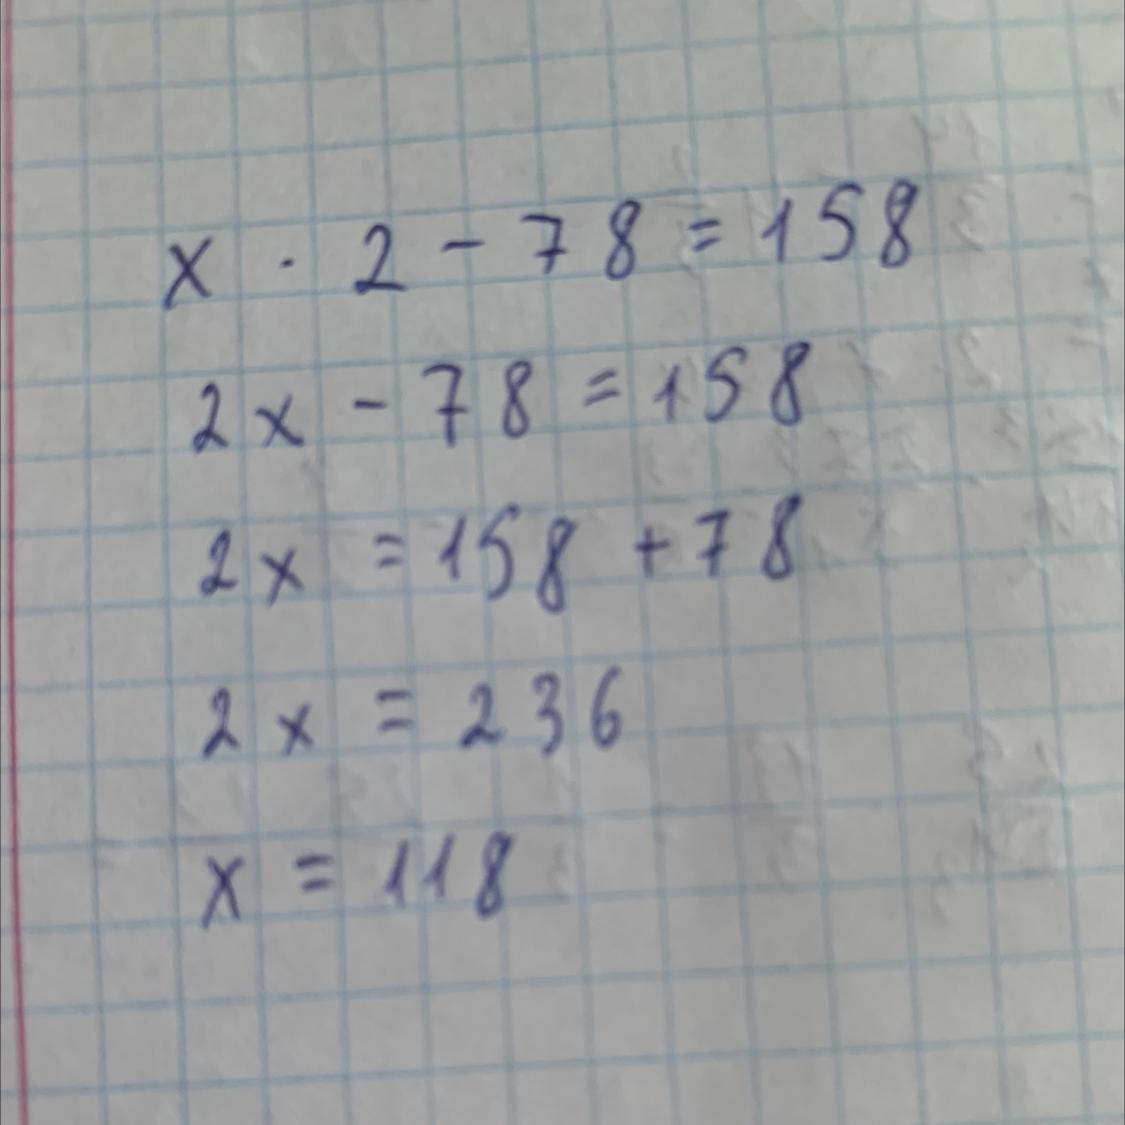 x · 2 - 78 = 158
2x - 78 = 158
2x = 158 + 78
2x = 236
x = 118